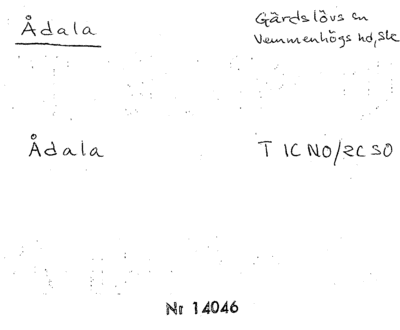 Ådala
Gärdslövs sn
Vemmenhögs hd, Sk
Ådala
T 1C NO/2C SO
Nr 14046